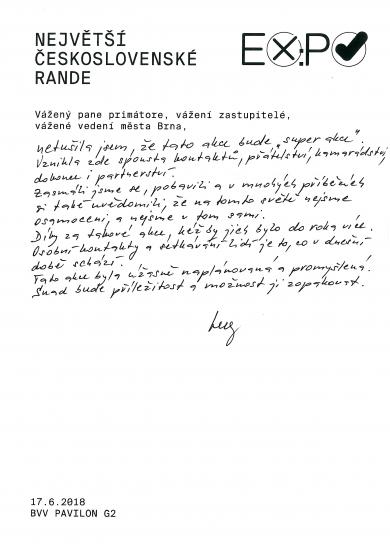 NEJVĚTŠÍ
ČESKOSLOVENSKÉ
RANDE
EXPO
Vážený pane primátore, vážení zastupitelé,
vážené vedení města Brna,
netušila jsem, že tato akce bude „super akce".
Vznikla zde spousta kontaktů, přátelství, kamarádství,
dokonce i partnerství.
Zasmáli jsme se, pobavili a v mnohých příbězích
si také uvědomili, že na tomto světě nejsme
osamoceni, a nejsme v tom sami.
Díky za takové akce, kéž by jich bylo do roka více.
Osobní kontakty a setkávání lidí je to, co v dnešní
době schází.
Tato akce byla úžasně naplánovaná a promyšlená.
Snad bude příležitost a možnost ji zopakovat.
17.6.2018
BVV PAVILON G2